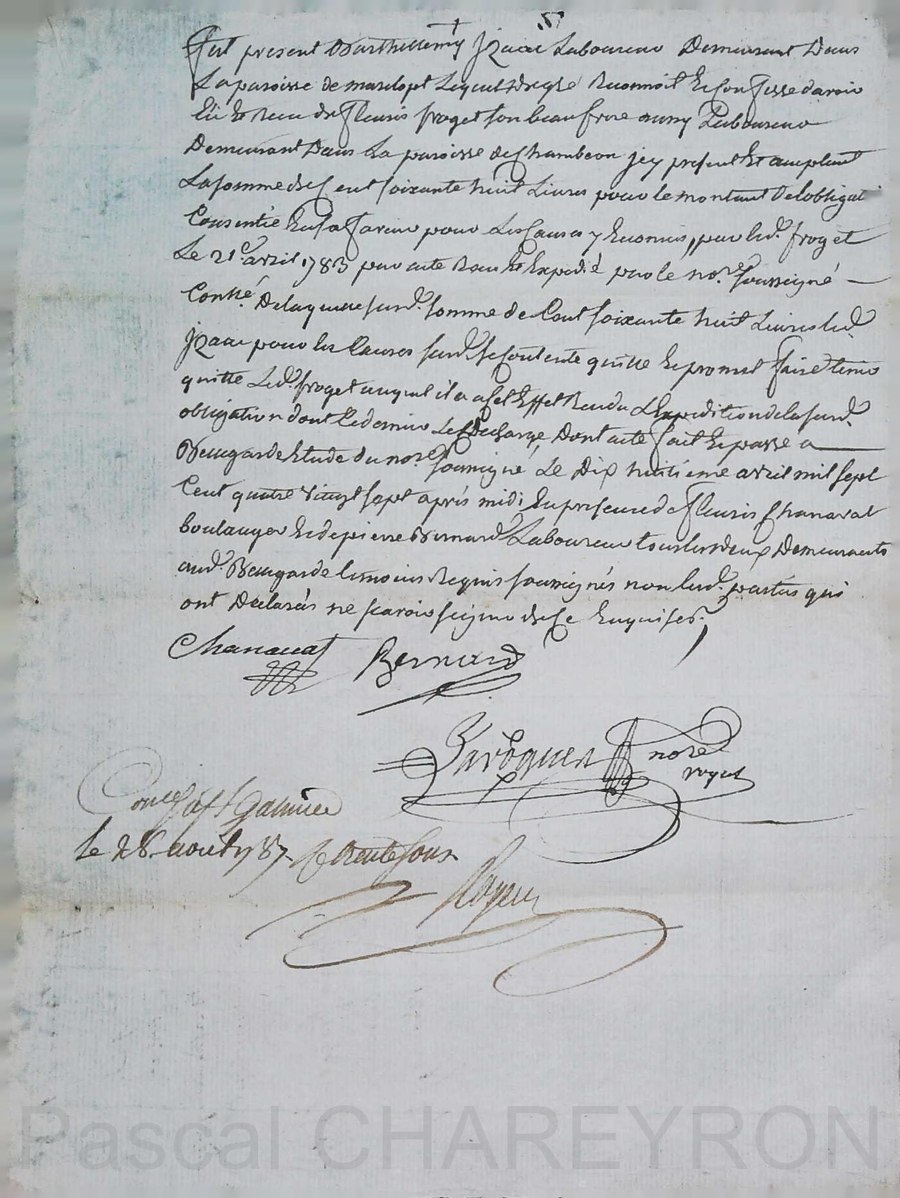 fut present Barthellemy Jzaac Laboureur Demeurant Dans
La paroisse de marclopt Lequel de gré Reconnoit Et Confesse davoir
Eü Et Recu de fleuris froget son beau frere aussy Laboureur
Demeurant Dans La paroisse de Chambeon jcy present Et acceptant
La somme de Cent soixante huit Livres pour le montant De lobligaon
Consentie En sa faveur pour Les Causes y Enoncées, par led. froget
Le 21e. avril 1783 par acte Recu Et Expedié par le nore. soussigné
Contlé. De laquelle susd. somme de Cent soixante huit Livres led.
Jzaac pour les Causes susd. se Contente quitte Et promet faire tenir
quitte Led. froget auquel il a a cet Effet Rendu LExpedition de la susd.
obligation dont Ce dernier Le Decharge Dont acte fait Et passé a
Beaugarde Etude du nore. soussigné Le Dix huitieme avril mil sept
Cent quatre vingt sept après midi En presence de fleuris Chanavat
boulanger Et de pierre Bernard Laboureur tous les deux Demeurants
aud. Beaugarde temoins Requis soussignés non lesd. parties qui
ont Declarés ne scavoir signer de Ce Enquises.
Chanavat Bernard
nore
royal
Conlé a St Galmier
le 28. aout 1787. Rc trente sous
Royer
Pascal CHAREYRON